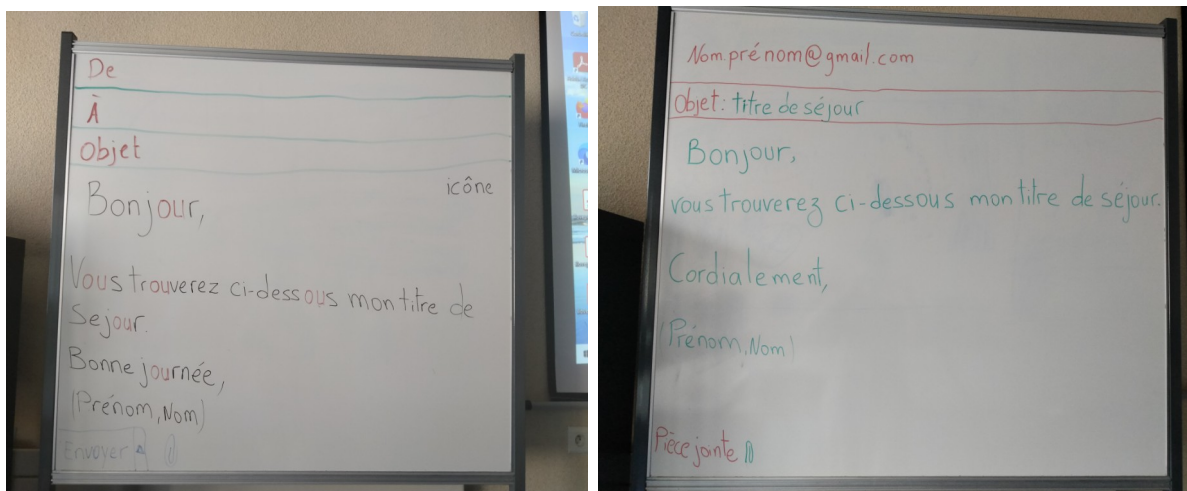 De
À
Objet
icône
Bonjour,
Vous trouverez ci-dessous mon titre de
Sejour.
Bonne journée,
(Prénom, Nom)
Envoyer
Nom.prénom@gmail.com
Objet : titre de séjour
Bonjour,
vous trouverez ci-dessous mon titre de séjour.
Cordialement,
(Prénom, Nom)
Pièce jointe